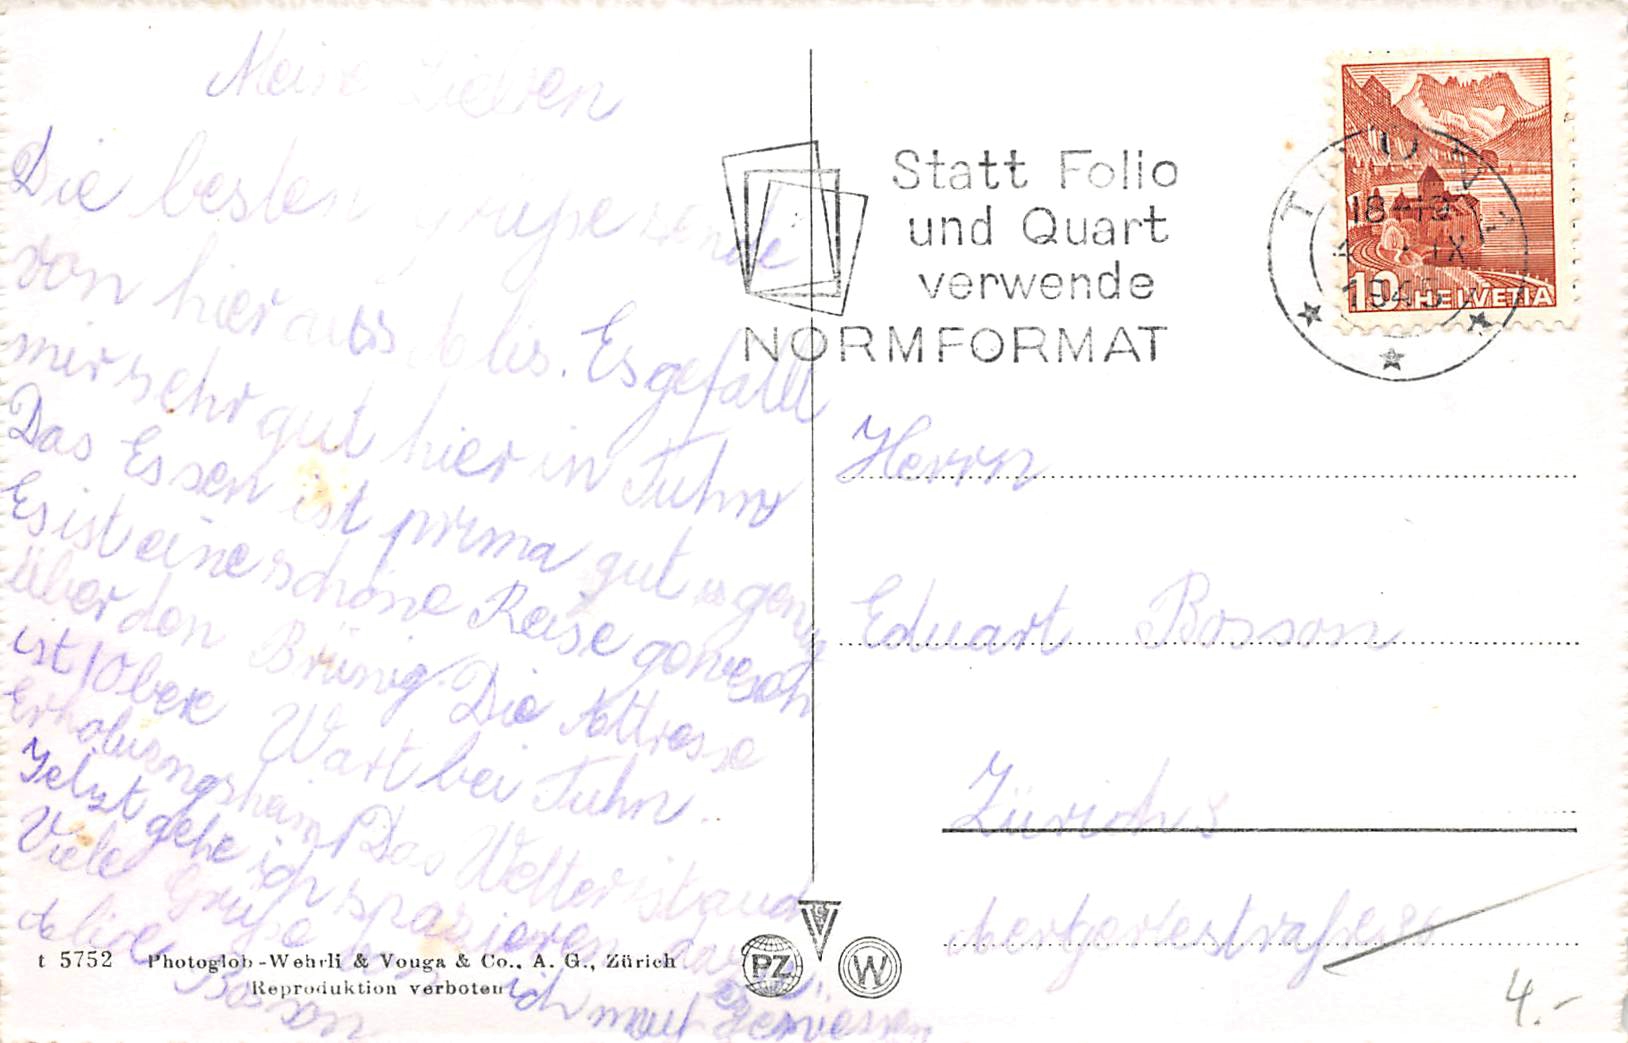 Meine Lieben
Die besten grüsse sende
von hier aus Alis. Es gefällt
mir sehr gut hier in Tuhn
Das Essen ist prima gut u genug
Es ist eine schöne Reise gewesen
über den Brünig. Die Attresse
ist Obere Wart bei Tuhn.
Erholungsheim Das Wetter ist auch
Jetzt gehe ich spazieren das
Viele Grüße
ich muss geniessen
Bosson
Statt Folio
und Quart
verwende
NORMFORMAT
THUN
18-19
IX
1945
10 HELVETIA
Herrn
Eduart Bosson
Zürich 8
86
4.-
t 5752 Photoglob-Wehrli & Vouga & Co., A. G., Zürich
Reproduktion verboten
PZ
W